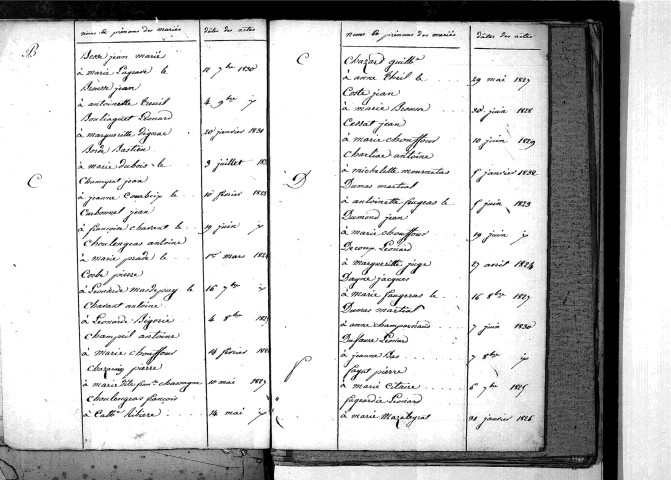 noms et prénoms des mariés dates des actes
B
Besse jean marie
à marie Pagnac le 11 7bre 1830
Brousse jean
à antoinette Treuil 4 9bre id
Bouliaguet Léonard
à marguerite dignac 20 janvier 1831
Borde Bastien
à marie dubois le 3 juillet
C
Chameyrat jean
à jeanne Courboix le 10 février 1823
Carbonnel jean
à françoise Chavent le 19 juin id
Choulengeas antoine
à marie prade le 1er mars 1824
Coste pierre
à Léonarde masdepuy le 16 7bre id
Chavant antoine
à Léonarde Bigorie 4 8bre
Champeil antoine
à marie Chouffour 14 février
Chazarin pierre
à marie dite chassagne 10 mai 1827
Choulengeas françois
à Cathe 14 mai id
noms et prénoms des mariés dates des actes
C
Chazard guille
à anne theil le 29 mai 1827
Coste jean
à marie Brousse 30 juin 1828
Cessat jean
à marie Chouffour 10 juin 1829
Charliac antoine
à michelette mournetas 5 janvier 1832
D
Dumas martial
à antoinette faugeras le 5 juin 1823
Dumond jean
à marie Chouffour 19 juin id
Decoux Léonard
à marguerite juge 27 avril 1824
Dayne jacques
à marie faugeras le 16 8bre 1827
Dumas martial
à anne champournaud 7 juin 1830
Dufaure Léonard
à jeanne Bas 7 8bre id
f
fayat pierre
à marie Citerre 6 7bre 1825
fageardie Léonard
à marie Mazaleyrat 31 janvier 1826